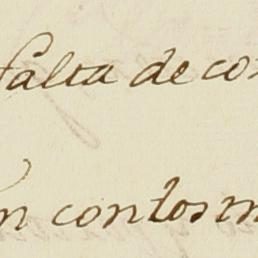 falta de co
n con los m